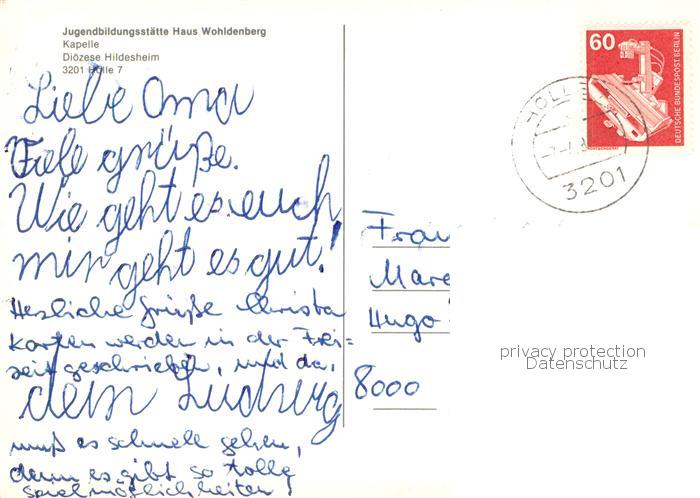 Jugendbildungsstätte Haus Wohldenberg
Kapelle
Diözese Hildesheim
3201 Holle 7
Liebe Oma
Fiele grüße.
Wie geht es euch
mir geht es gut!
Herzliche Grüße Christa
karten werden in der Frei-
zeit geschrieben, und da,
dein Ludwig
muß es schnell gehen,
denn es gibt so tolle
Spielmöglichkeiten
60
DEUTSCHE BUNDESPOST BERLIN
HOLLE
3201
Frau
Marg
Hugo
8000
privacy protection
Datenschutz